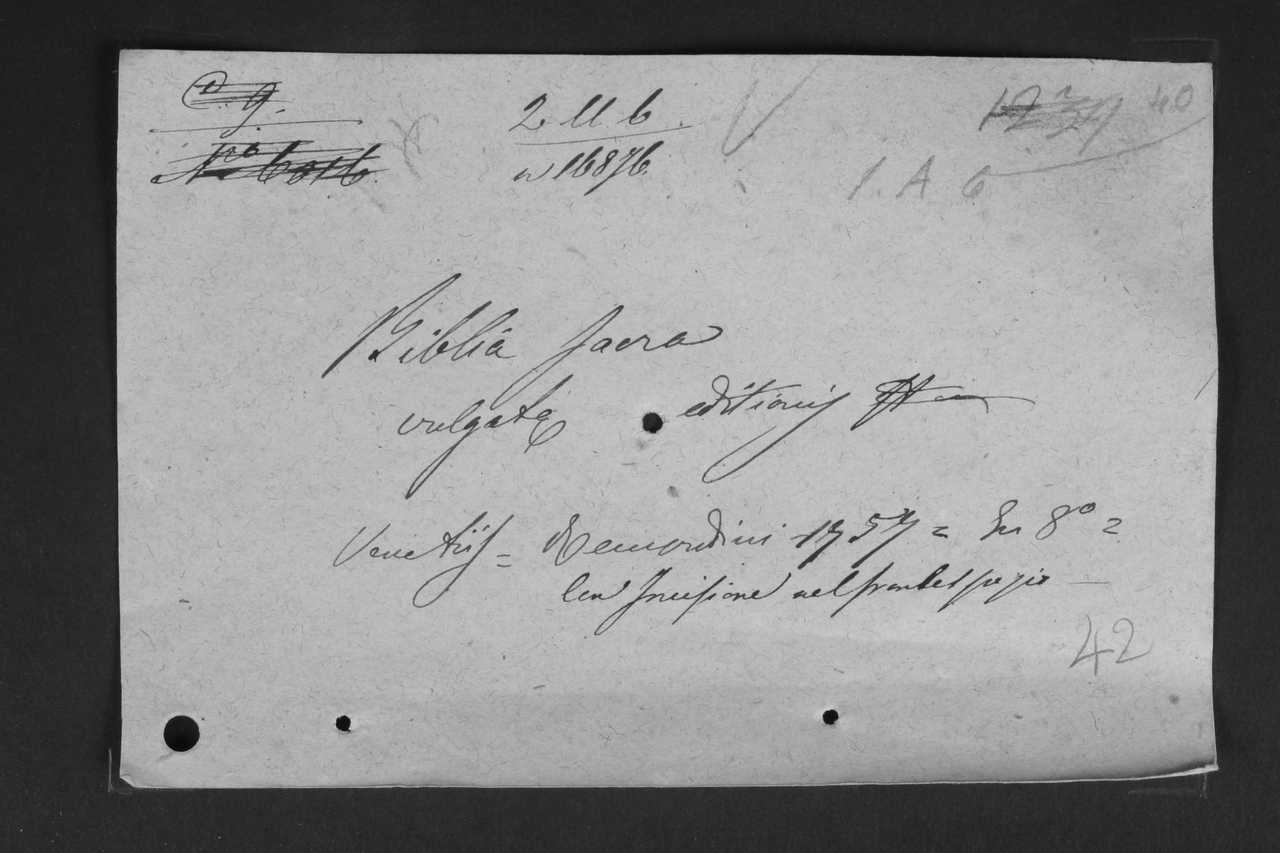 2 ll 6
n 16876
40
1. A 6
Biblia Sacra
vulgatę editionis
Venetiis = Remondini 1757 = In 8º =
Con Incisione nel frontespizio
42